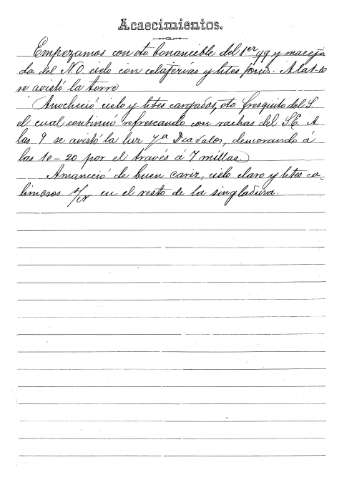 Acaecimientos.
Empezamos con vto bonancible del 1er qq y marejada
do del N.O. cielo con celajerias y htes foscos. A las
se avistó la torre
Anocheció cielo y htes cargados, vto fresquito del S
el cual continuó refrescando con rachas del SE A
las 9 se avistó la luz demorando á
las 10-20 por el través á 7 millas
Amaneció de buen cariz, cielo claro y htes ca-
limosos en el resto de la singladura